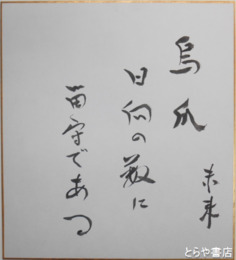 烏瓜
日向の藪に
留守である
とらや書店